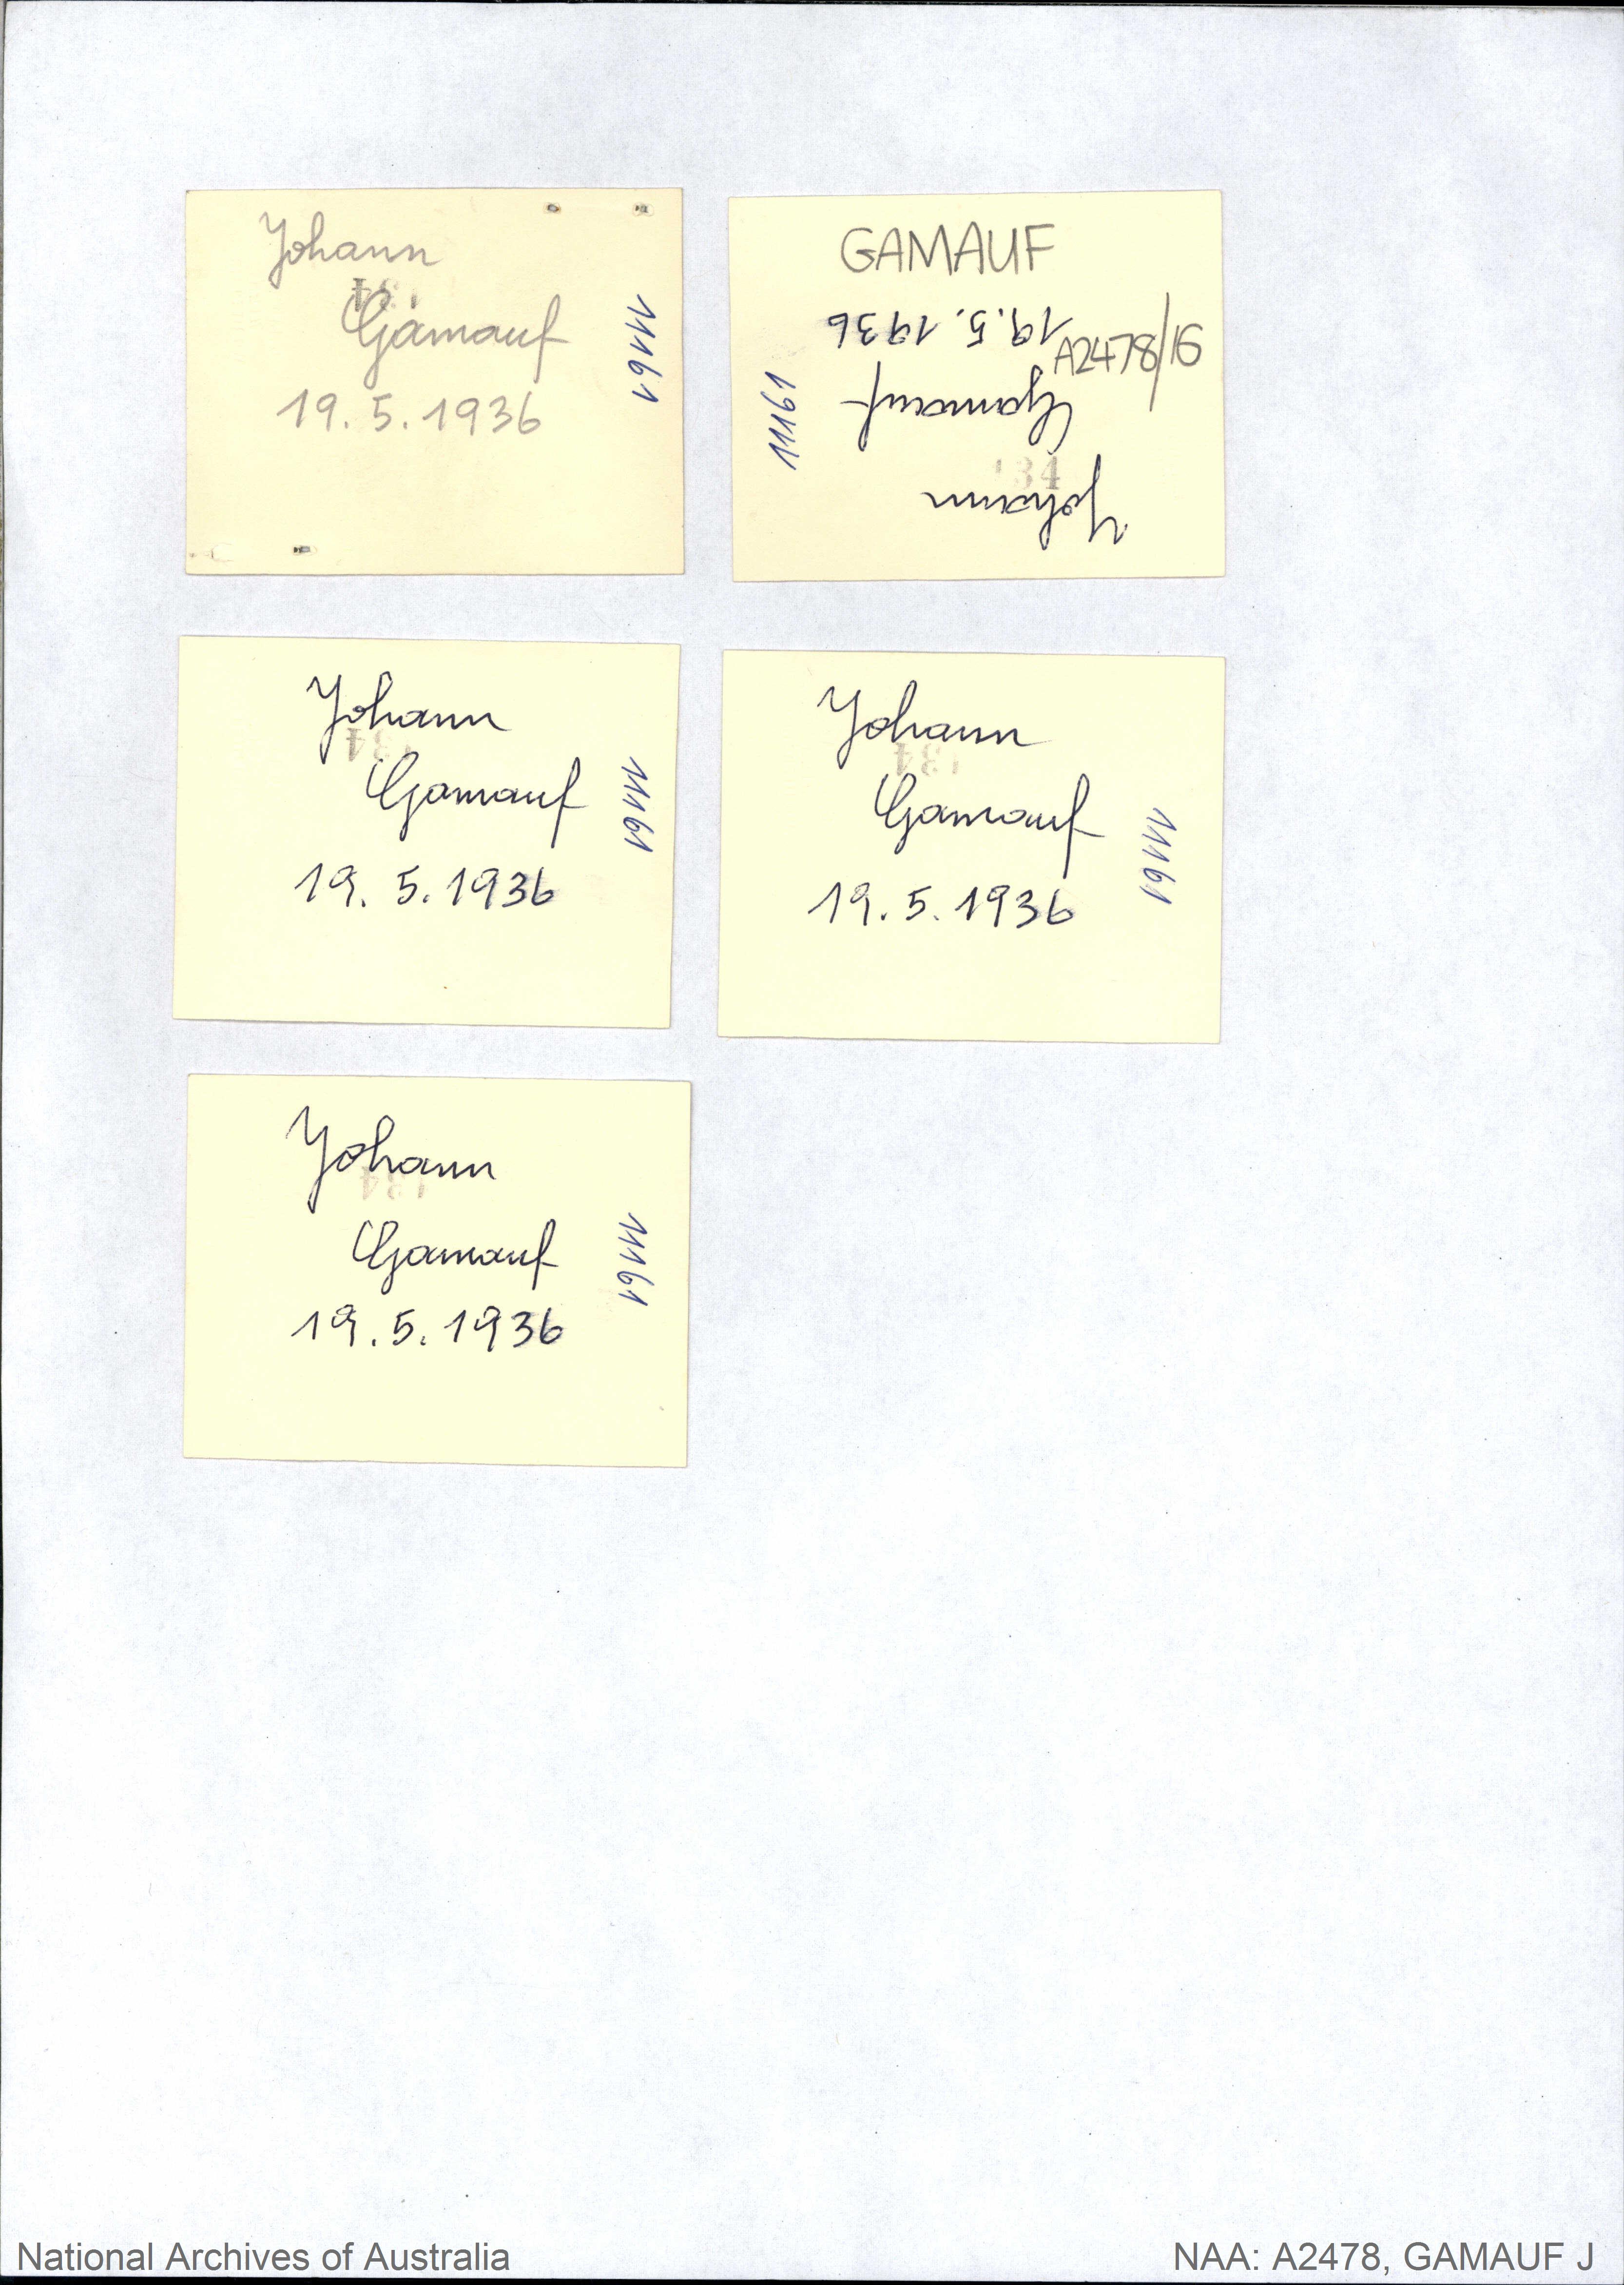 Johann
Gamauf
19.5.1936
11161
GAMAUF
A2478/16
19.5.1936
Gamauf
Johann
134
11161
Johann
Gamauf
19.5.1936
11161
Johann
Gamauf
19.5.1936
11161
Johann
Gamauf
19.5.1936
11161
National Archives of Australia
NAA: A2478, GAMAUF J